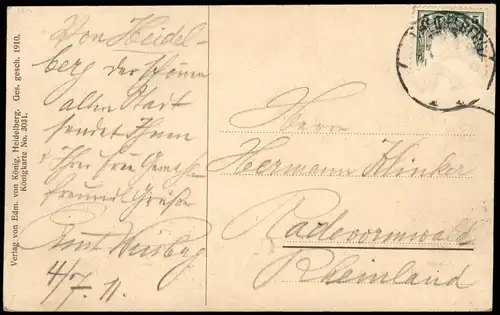 Verlag von Edm. von König, Heidelberg. Ges. gesch. 1910.
Königkarte No. 3031.
Von Heidel-
berg der schönen
alten Stadt
sendet Ihnen
freundl. Grüße
4/7. 11.
Herrn
Hermann Klinker
Radevormwald
Rheinland